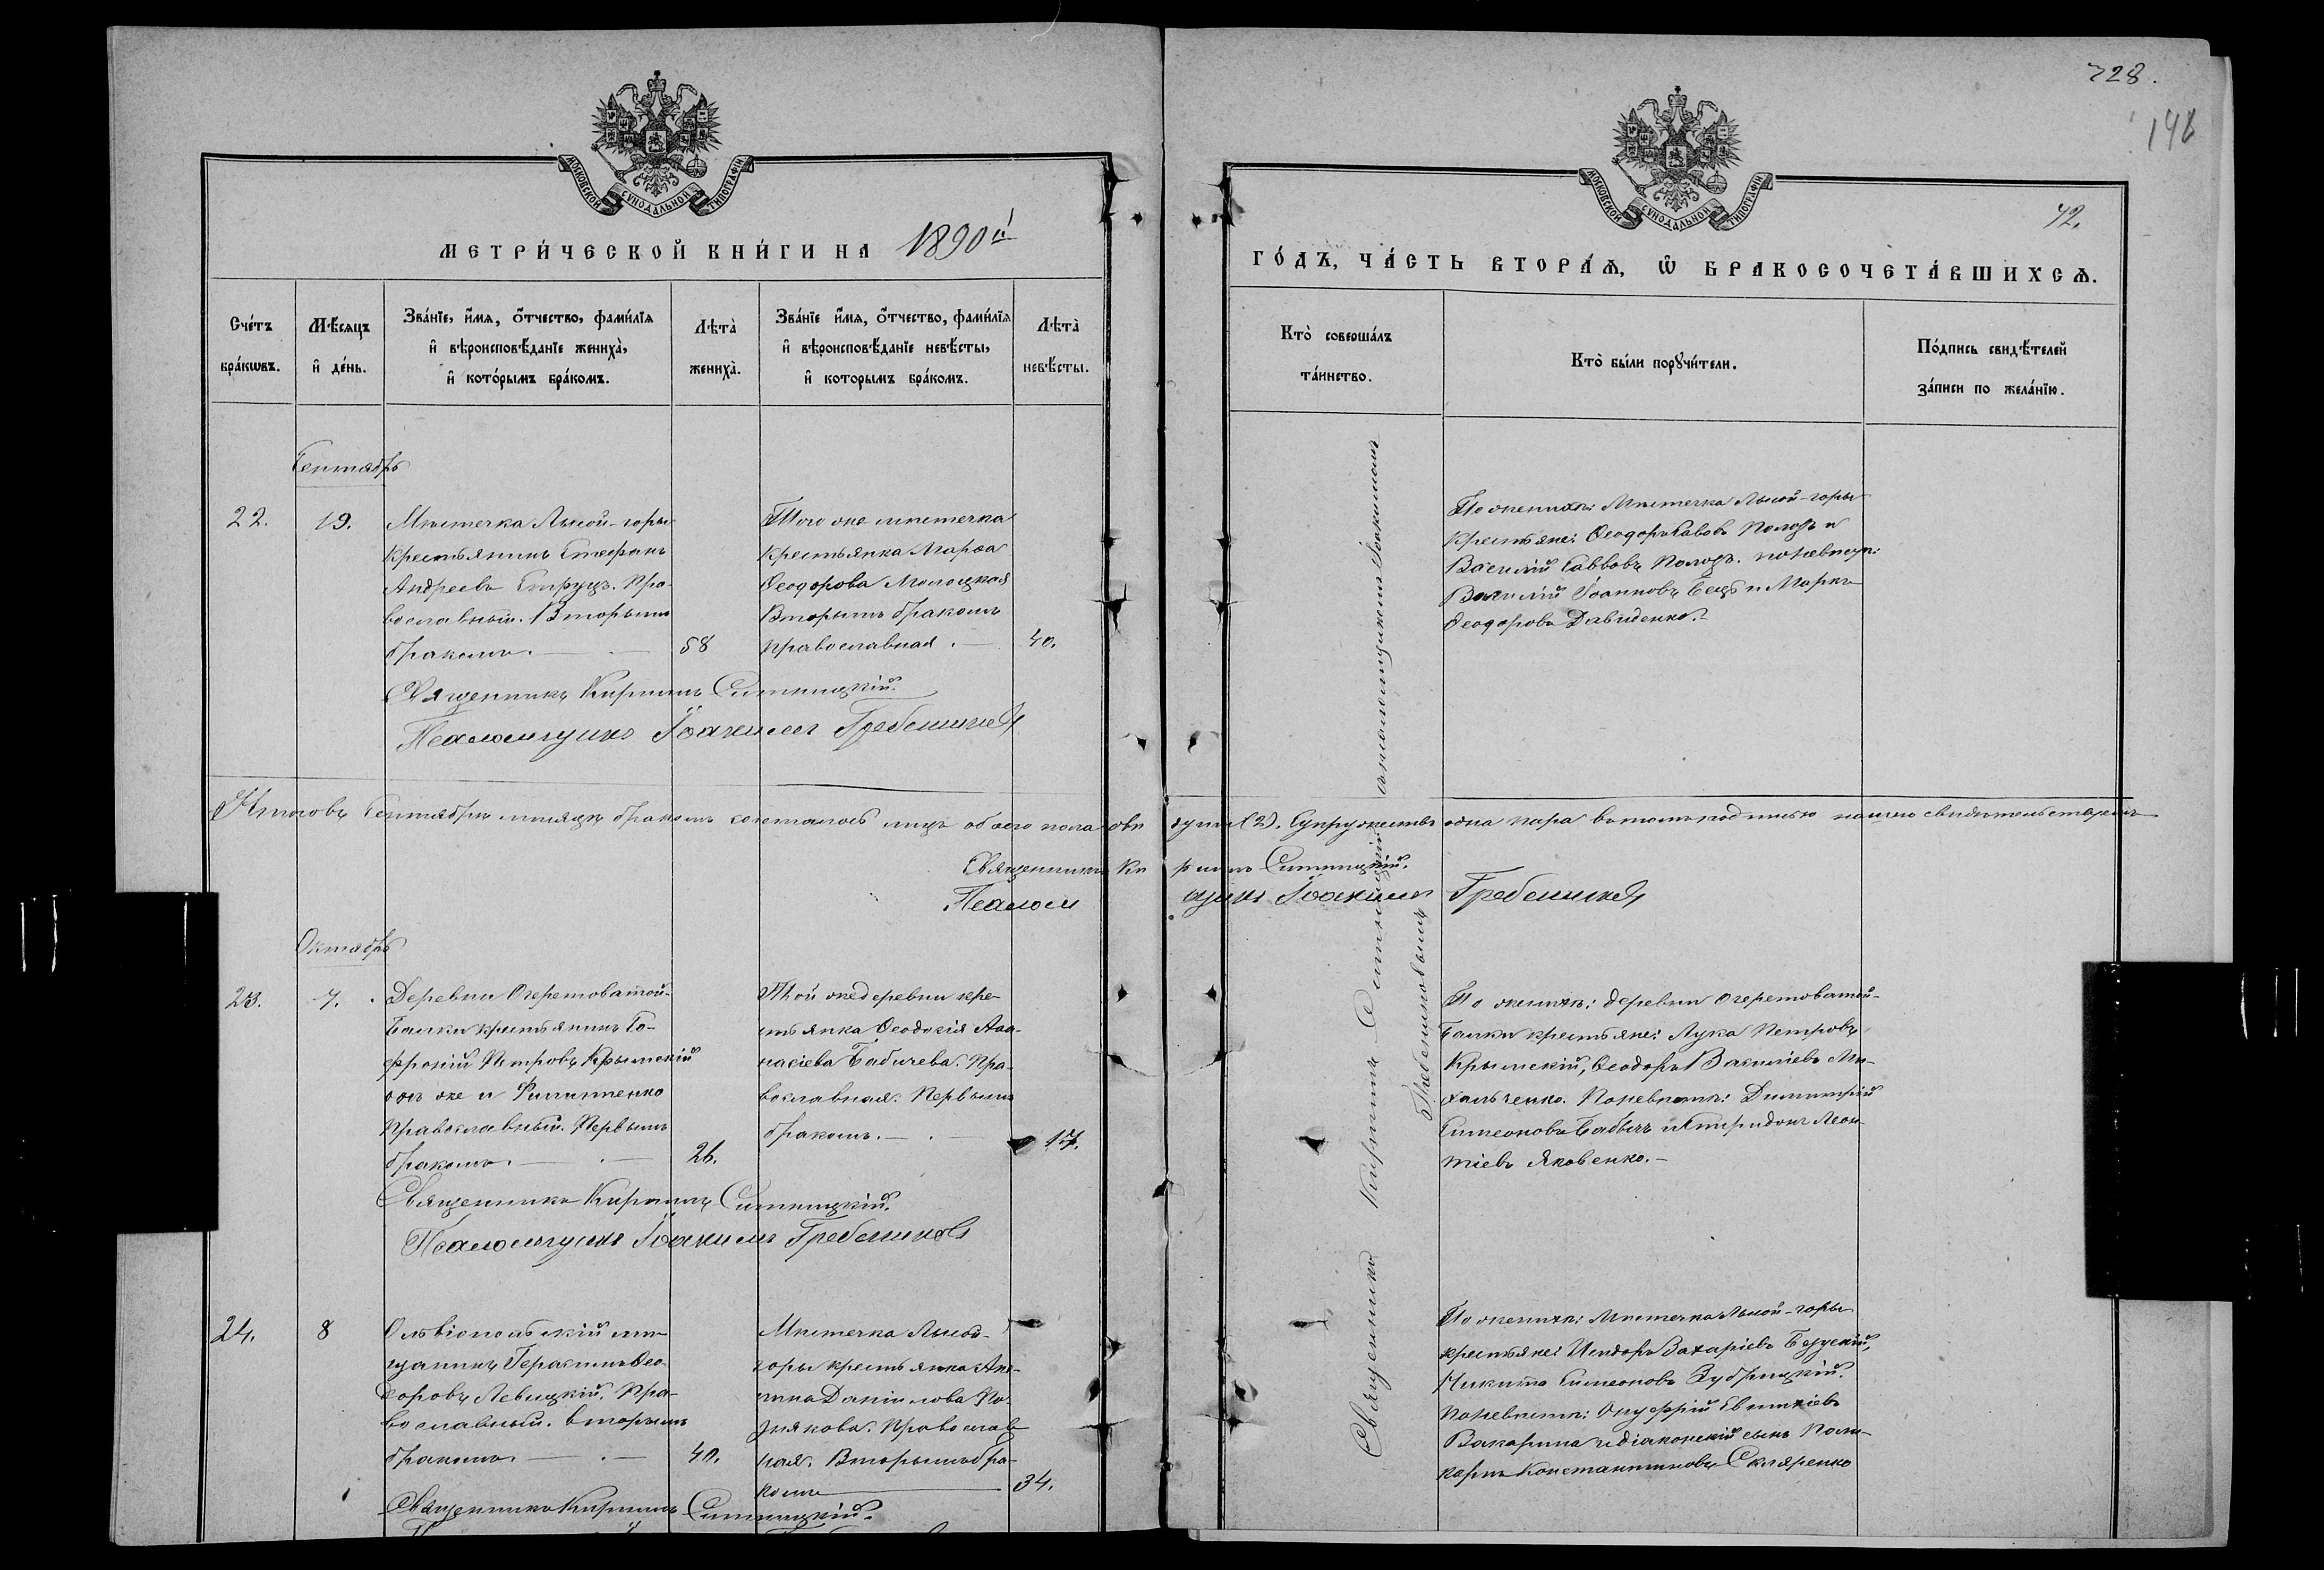 728.
148
МОСКОВСКОЙ СѴНОДАЛЬНОЙ ТИПОГРАФІИ
МОСКОВСКОЙ СѴНОДАЛЬНОЙ ТИПОГРАФІИ
42.
МЕТРИ́ЧЕСКОЙ КНИ́ГИ НА 1890й
ГО́ДЪ, ЧА́СТЬ ВТОРА́Ѧ, Ѡ҆ БРАКОСОЧЕТА́ВШИХСѦ.
Сче́тъ бра́кѡвъ.
Мѣ́сяцъ и҆ де́нь.
Зва́нїе, и҆́мя, ѻ҆́тчество, фами́лїя
и҆ вѣроисповѣ́данїе жениха̀,
и҆ кото́рымъ бра́комъ.
Лѣта̀ жениха̀.
Зва́нїе и҆́мя, ѻ҆́тчество, фами́лїя
и҆ вѣроисповѣ́данїе невѣ́сты,
и҆ которымъ бра́комъ.
Лѣта̀ невѣ́сты.
Кто̀ соверша́лъ
та́инство.
Кто̀ бы́ли порꙋчи́тели.
По́дпись свидѣ́телей
за́писи по жела́нїю.
Сентябрь
22.
19.
Мѣстечка Лысой-горы
крестьянинъ Стефанъ
Андреевъ Струцъ. Пра-
вославный. Вторымъ
бракомъ.
58
Того же мѣстечка
крестьянка Марѳа
Ѳеодорова Молоцкая
Вторымъ бракомъ
православная.
40.
По женихѣ: Мѣстечка Лысой-горы
крестьяне: Ѳеодоръ Саввовъ Полозъ и
Василій Саввовъ Полозъ. по невѣстѣ:
Василій Іоанновъ Бецъ и Маркъ
Ѳеодоровъ Давиденко.
Священникъ Кириллъ Ситницкій.
Псаломщикъ Іоакимъ Гребенниковъ
Итого въ Сентябрѣ мѣсяцѣ бракомъ сочеталось лицъ обоего пола двѣ души (2). Супружествъ одна пара въ томъ подписью нашею свидѣтельствуемъ
Священникъ Кириллъ Ситницкій.
Псаломщикъ Іоакимъ Гребенниковъ
Октябрь
23.
7.
Деревни Очеретоватой-
Балки крестьянинъ Со-
фроній Петровъ Крымскій
онъ же и Филипенко
православный. Первымъ
бракомъ.
26.
Той же деревни кре-
стьянка Ѳеодосія Аѳа-
насіева Бабичева. Пра-
вославная. Первымъ
бракомъ.
17.
По женихѣ: деревни Очеретоватой-
Балки крестьяне: Лука Петровъ
Крымскій, Ѳеодоръ Василіевъ Ми-
хальченко. По невѣстѣ: Димитрій
Симеоновъ Бабичъ и Спиридонъ Леон-
тіевъ Яковенко.
Священникъ Кириллъ Ситницкій.
Псаломщикъ Іоакимъ Гребенниковъ
24.
8
Ольвіопольскій мѣ-
щанинъ Герасимъ Ѳео-
доровъ Левицкій. Пра-
вославный. вторымъ
бракомъ.
40.
Мѣстечка Лысой-
горы крестьянка Аки-
лина Даніилова По-
знякова. Православ
ная. Вторымъ бра-
комъ
34.
По женихѣ: Мѣстечка Лысой-горы
крестьяне: Исидоръ Захаріевъ
Никита Симеоновъ Зубрицкій.
По невѣстѣ: Онуфрій Евтихіевъ
Вакарина и діаконскій сынъ Поли-
карпъ Константиновъ Скляренко
Священникъ Кириллъ Ситницкій.
Священникъ Кириллъ Ситницкій съ псаломщикомъ Іоакимомъ
Гребенниковымъ